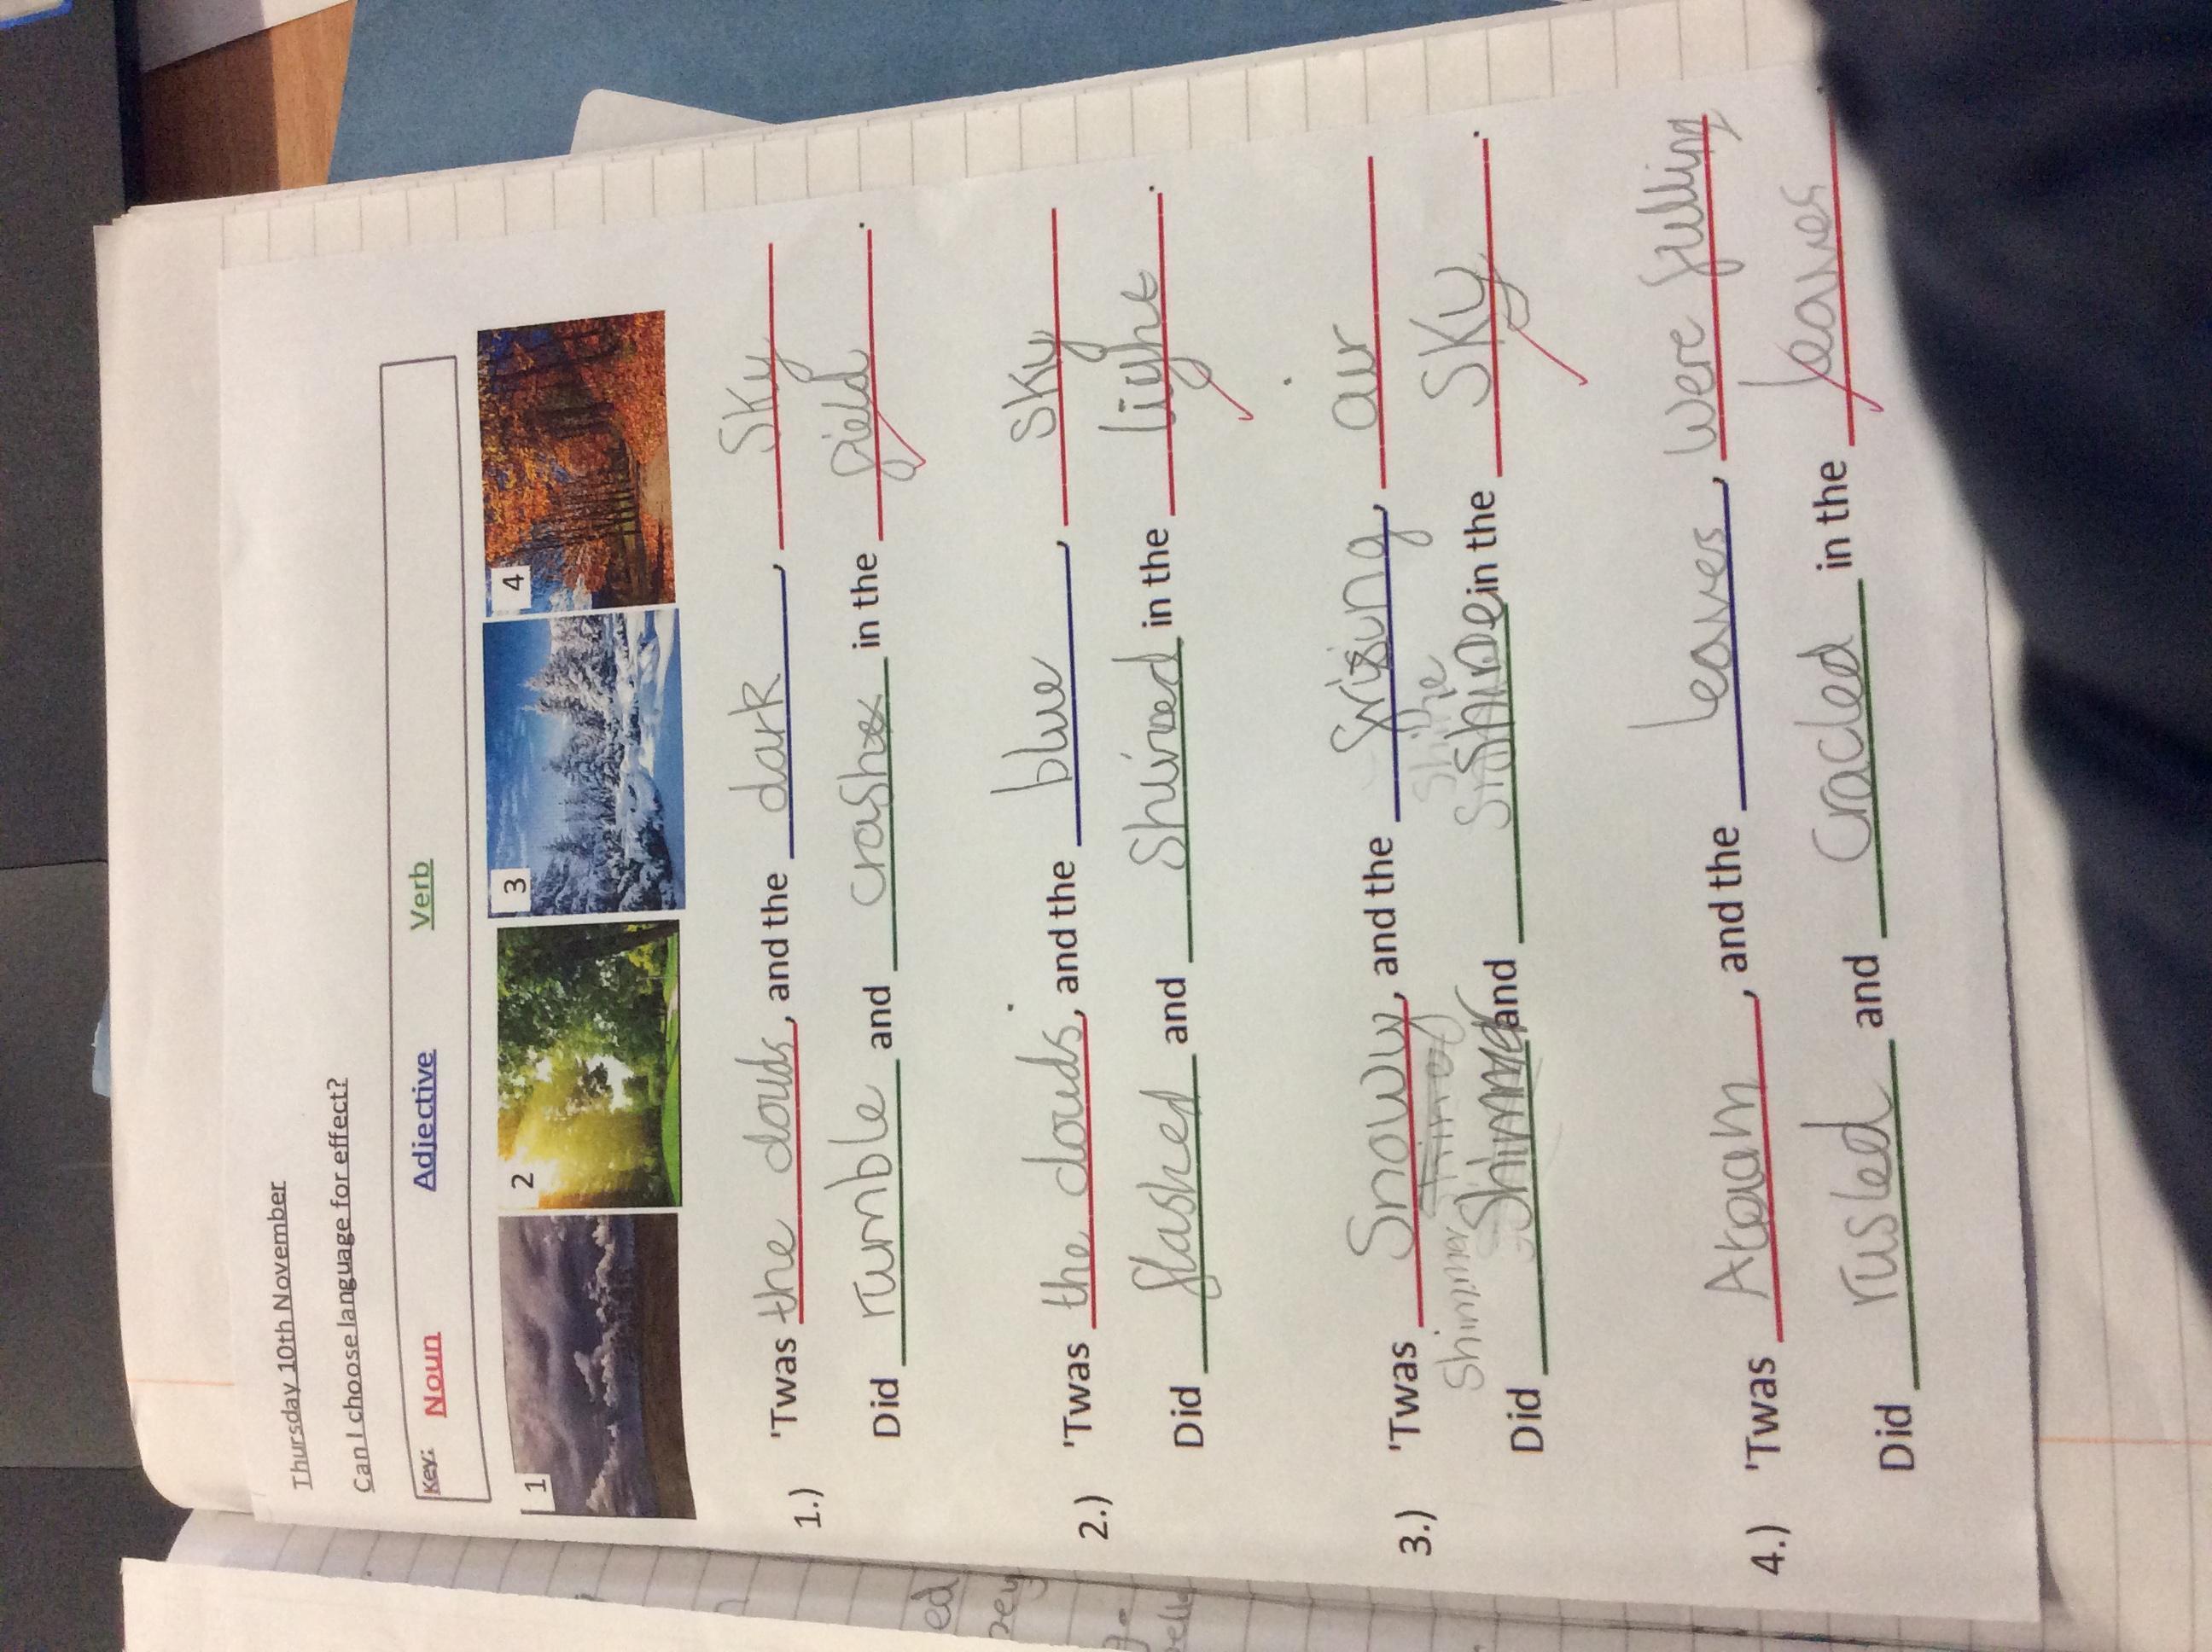 Thursday 10th November
Can I choose language for effect?
Key: Noun Adjective Verb
1 2 3 4
1.) 'Twas the clouds, and the dark, sky
Did rumble and crash in the field.
2.) 'Twas the clouds, and the blue, sky
Did flashed and shined in the light.
3.) 'Twas Snowy, and the air
Shimmer Shine
Did Shimmer and Shine in the Sky.
4.) 'Twas, and the leaves, were fulling
Did rusled and Cracled in the leaves.